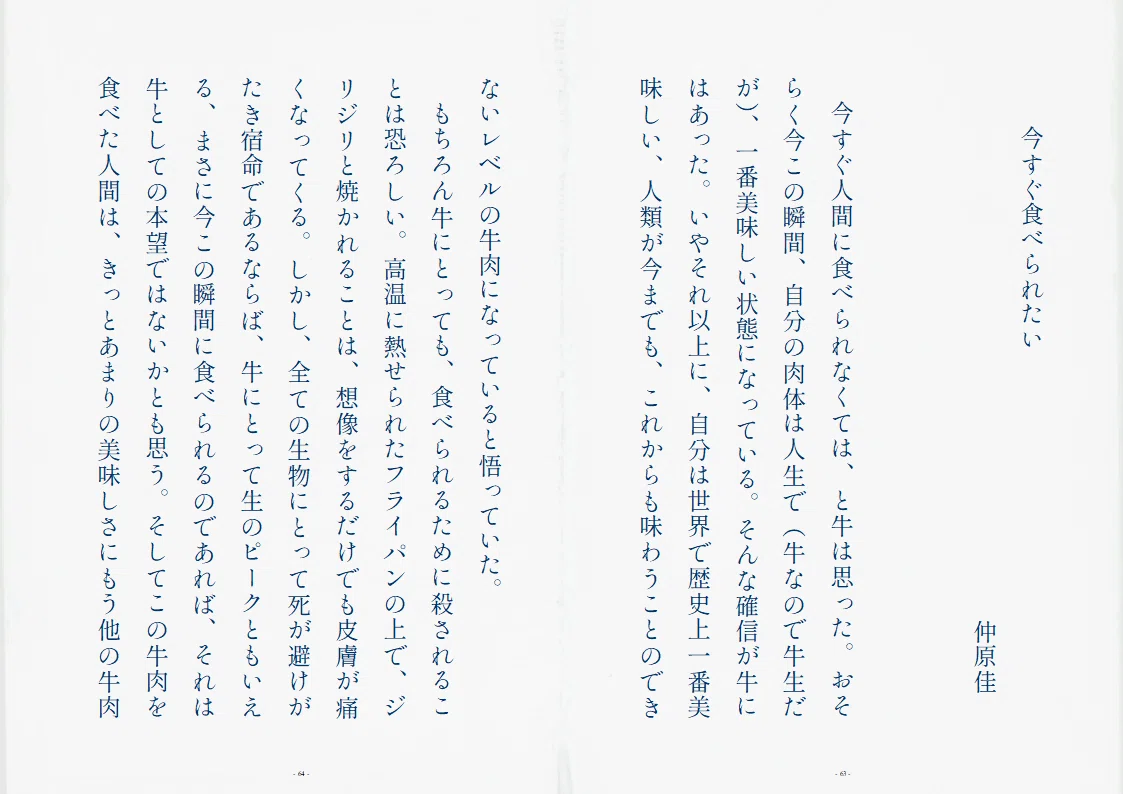 今すぐ食べられたい
仲原佳
今すぐ人間に食べられなくては、と牛は思った。おそ
らく今この瞬間、自分の肉体は人生で（牛なので牛生だ
が）、一番美味しい状態になっている。そんな確信が牛に
はあった。いやそれ以上に、自分は世界で歴史上一番美
味しい、人類が今までも、これからも味わうことのでき
- 63 -
ないレベルの牛肉になっていると悟っていた。
もちろん牛にとっても、食べられるために殺されるこ
とは恐ろしい。高温に熱せられたフライパンの上で、ジ
リジリと焼かれることは、想像をするだけでも皮膚が痛
くなってくる。しかし、全ての生物にとって死が避けが
たき宿命であるならば、牛にとって生のピークともいえ
る、まさに今この瞬間に食べられるのであれば、それは
牛としての本望ではないかとも思う。そしてこの牛肉を
食べた人間は、きっとあまりの美味しさにもう他の牛肉
- 64 -